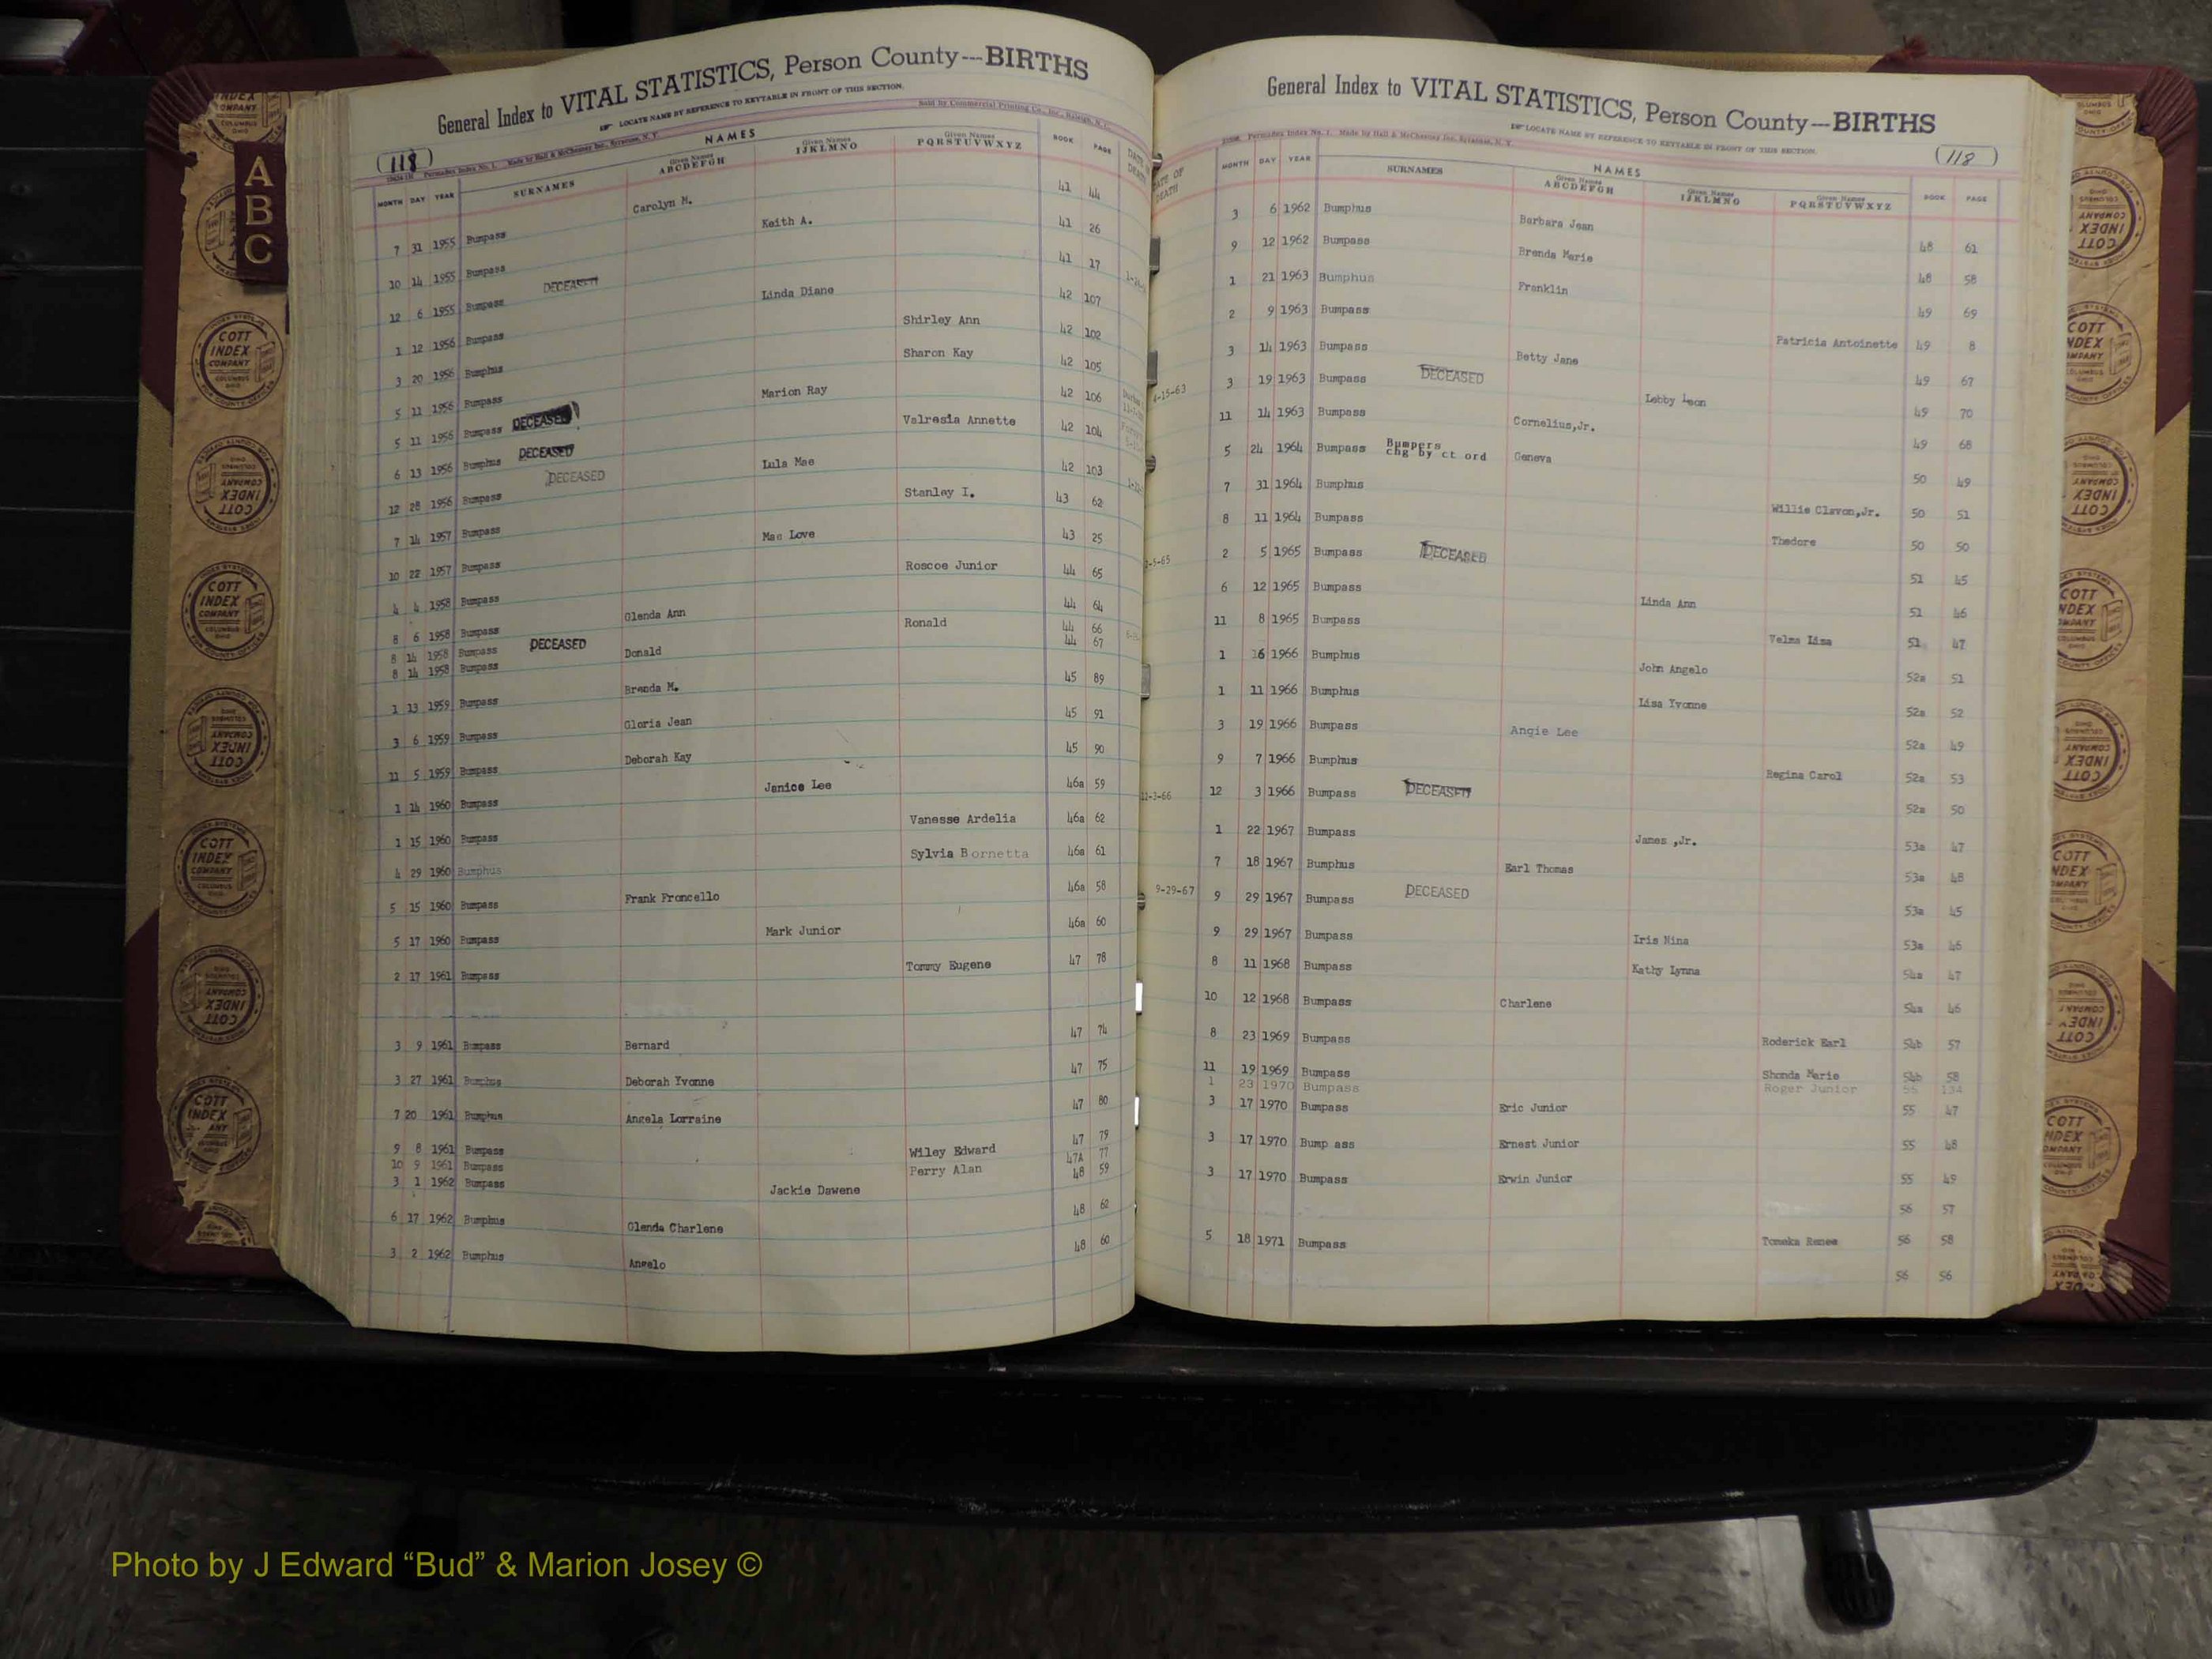 General Index to VITAL STATISTICS, Person County---BIRTHS
LOCATE NAME BY REFERENCE TO KEYTABLE IN FRONT OF THIS SECTION.
(118)
Sold by Commercial Printing Co., Inc., Raleigh, N. C.
NAMES
MONTH DAY YEAR SURNAMES Given Names ABCDEFGH Given Names IJKLMNO Given Names PQRSTUVWXYZ BOOK PAGE DATE OF DEATH
7 31 1955 Bumpass Carolyn M. 41 44
10 14 1955 Bumpass Keith A. 41 26
12 6 1955 Bumpass DECEASED 41 17
1 12 1956 Bumpass Linda Diane 42 107
3 20 1956 Bumphus Shirley Ann 42 102
5 11 1956 Bumpass Sharon Kay 42 105
5 11 1956 Bumpass DECEASED Marion Ray 42 106
6 13 1956 Bumphus DECEASED Valresia Annette 42 104
12 28 1956 Bumpass DECEASED Lula Mae 42 103
7 14 1957 Bumpass Stanley I. 43 62
10 22 1957 Bumpass Mae Love 43 25
4 4 1958 Bumpass Roscoe Junior 44 65
8 6 1958 Bumpass Glenda Ann 44 64
8 14 1958 Bumpass DECEASED Ronald 44 66
8 14 1958 Bumpass Donald 44 67
1 13 1959 Bumpass Brenda M. 45 89
3 6 1959 Bumpass Gloria Jean 45 91
11 5 1959 Bumpass Deborah Kay 45 90
1 14 1960 Bumpass Janice Lee 46a 59
1 15 1960 Bumpass Vanesse Ardelia 46a 62
4 29 1960 Bumphus Sylvia Bornetta 46a 61
5 15 1960 Bumpass Frank Froncello 46a 58
5 17 1960 Bumpass Mark Junior 46a 60
2 17 1961 Bumpass Tommy Eugene 47 78
3 9 1961 Bumpass Bernard 47 74
3 27 1961 Bumphus Deborah Yvonne 47 75
7 20 1961 Bumphus Angela Lorraine 47 80
9 8 1961 Bumpass Wiley Edward 47 79
10 9 1961 Bumpass Perry Alan 47A 77
3 1 1962 Bumpass Jackie Dawene 48 59
6 17 1962 Bumphus Glenda Charlene 48 62
3 2 1962 Bumphus Angelo 48 60
General Index to VITAL STATISTICS, Person County—BIRTHS
LOCATE NAME BY REFERENCE TO KEYTABLE IN FRONT OF THIS SECTION.
(118)
NAMES
DATE OF DEATH MONTH DAY YEAR SURNAMES Given Names ABCDEFGH Given Names IJKLMNO Given Names PQRSTUVWXYZ BOOK PAGE
3 6 1962 Bumphus Barbara Jean 48 61
9 12 1962 Bumpass Brenda Marie 48 58
1 21 1963 Bumphus Franklin 49 69
2 9 1963 Bumpass Patricia Antoinette 49 8
3 14 1963 Bumpass Betty Jane 49 67
4-15-63 3 19 1963 Bumpass DECEASED Lobby Leon 49 70
11 14 1963 Bumpass Cornelius,Jr. 49 68
5 24 1964 Bumpass Bumpers chg by ct ord Geneva 50 49
7 31 1964 Bumphus Willie Clavon,Jr. 50 51
8 11 1964 Bumpass Thedore 50 50
2-5-65 2 5 1965 Bumpass DECEASED 51 45
6 12 1965 Bumpass Linda Ann 51 46
11 8 1965 Bumpass Velma Lisa 51 47
1 16 1966 Bumphus John Angelo 52a 51
1 11 1966 Bumphus Lisa Yvonne 52a 52
3 19 1966 Bumpass Angie Lee 52a 49
9 7 1966 Bumphus Regina Carol 52a 53
12-3-66 12 3 1966 Bumpass DECEASED 52a 50
1 22 1967 Bumpass James ,Jr. 53a 47
7 18 1967 Bumphus Earl Thomas 53a 48
9-29-67 9 29 1967 Bumpass DECEASED 53a 45
9 29 1967 Bumpass Iris Nina 53a 46
8 11 1968 Bumpass Kathy Lynna 54a 47
10 12 1968 Bumpass Charlene 54a 46
8 23 1969 Bumpass Roderick Earl 54b 57
11 19 1969 Bumpass Shonda Marie 54b 58
1 23 1970 Bumpass Roger Junior 55 134
3 17 1970 Bumpass Eric Junior 55 47
3 17 1970 Bump ass Ernest Junior 55 48
3 17 1970 Bumpass Erwin Junior 55 49
56 57
5 18 1971 Bumpass Tomeka Renee 56 58
56 56
A
B
C
COTT INDEX COMPANY COLUMBUS OHIO
Photo by J Edward “Bud” & Marion Josey ©